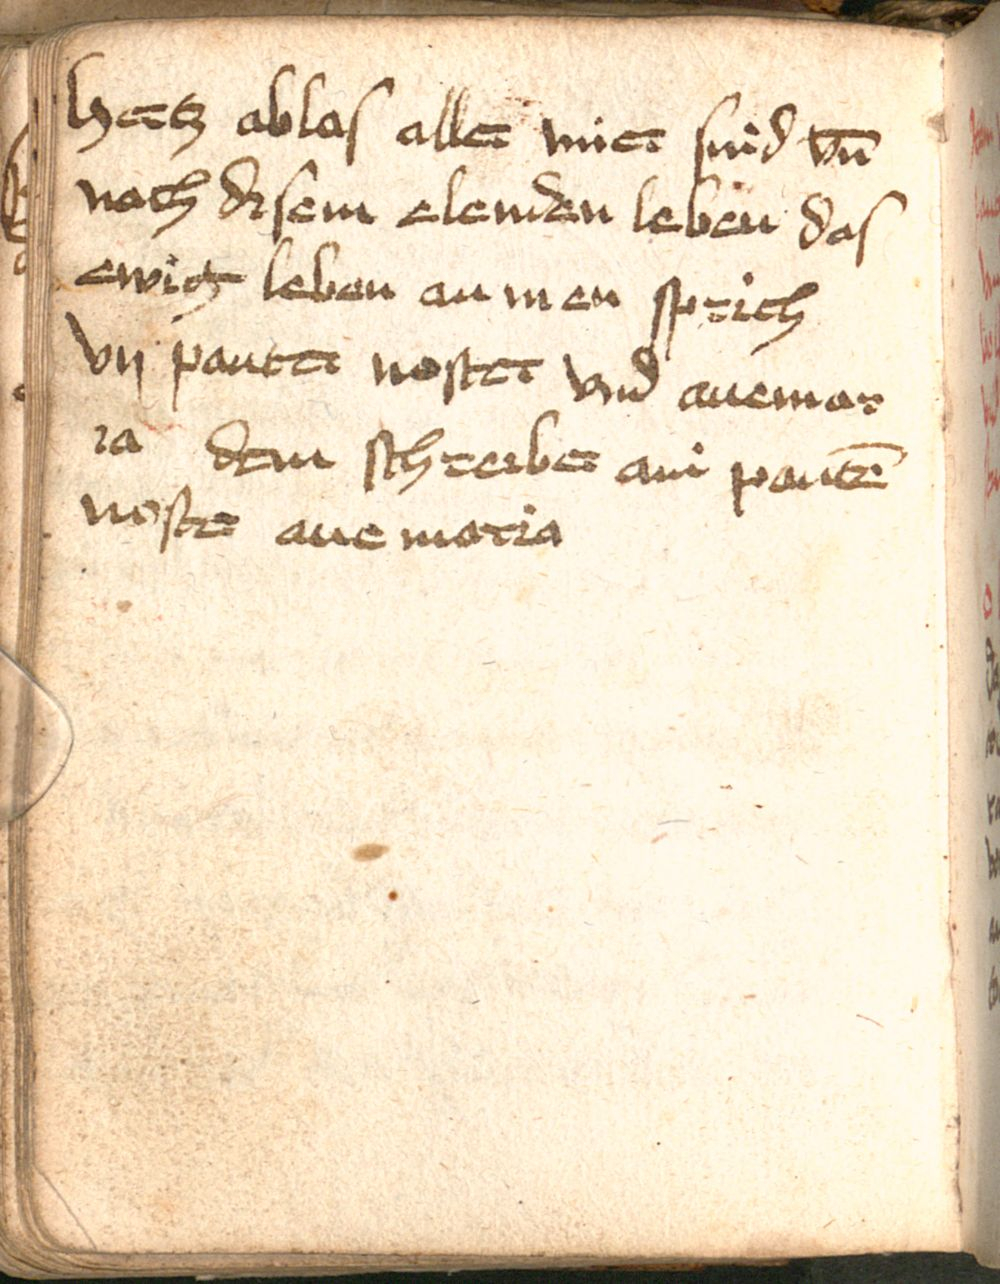 hertz ablas aller mier sünd vn̄
nach disem elenden leben das
ewig leben au m en sprich
vij pauter noster vnd auemar
ia dem schreiber ain pautē
noster aue maria